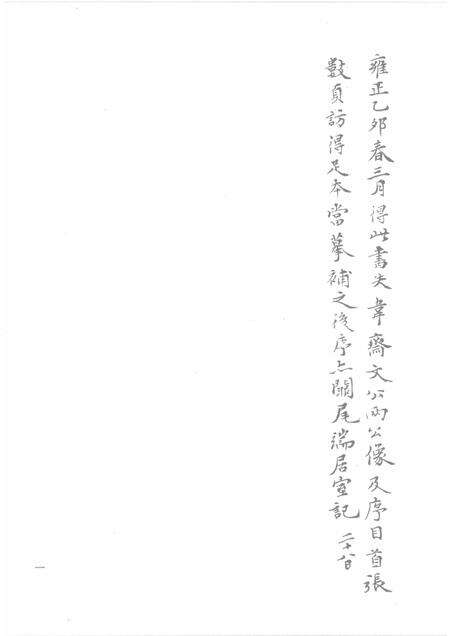 雍正乙卯春三月得此書失韋齋文公兩公像及序目首張
數頁訪得足本當摹補之後序亦闕尾端居室記 二十八日
一